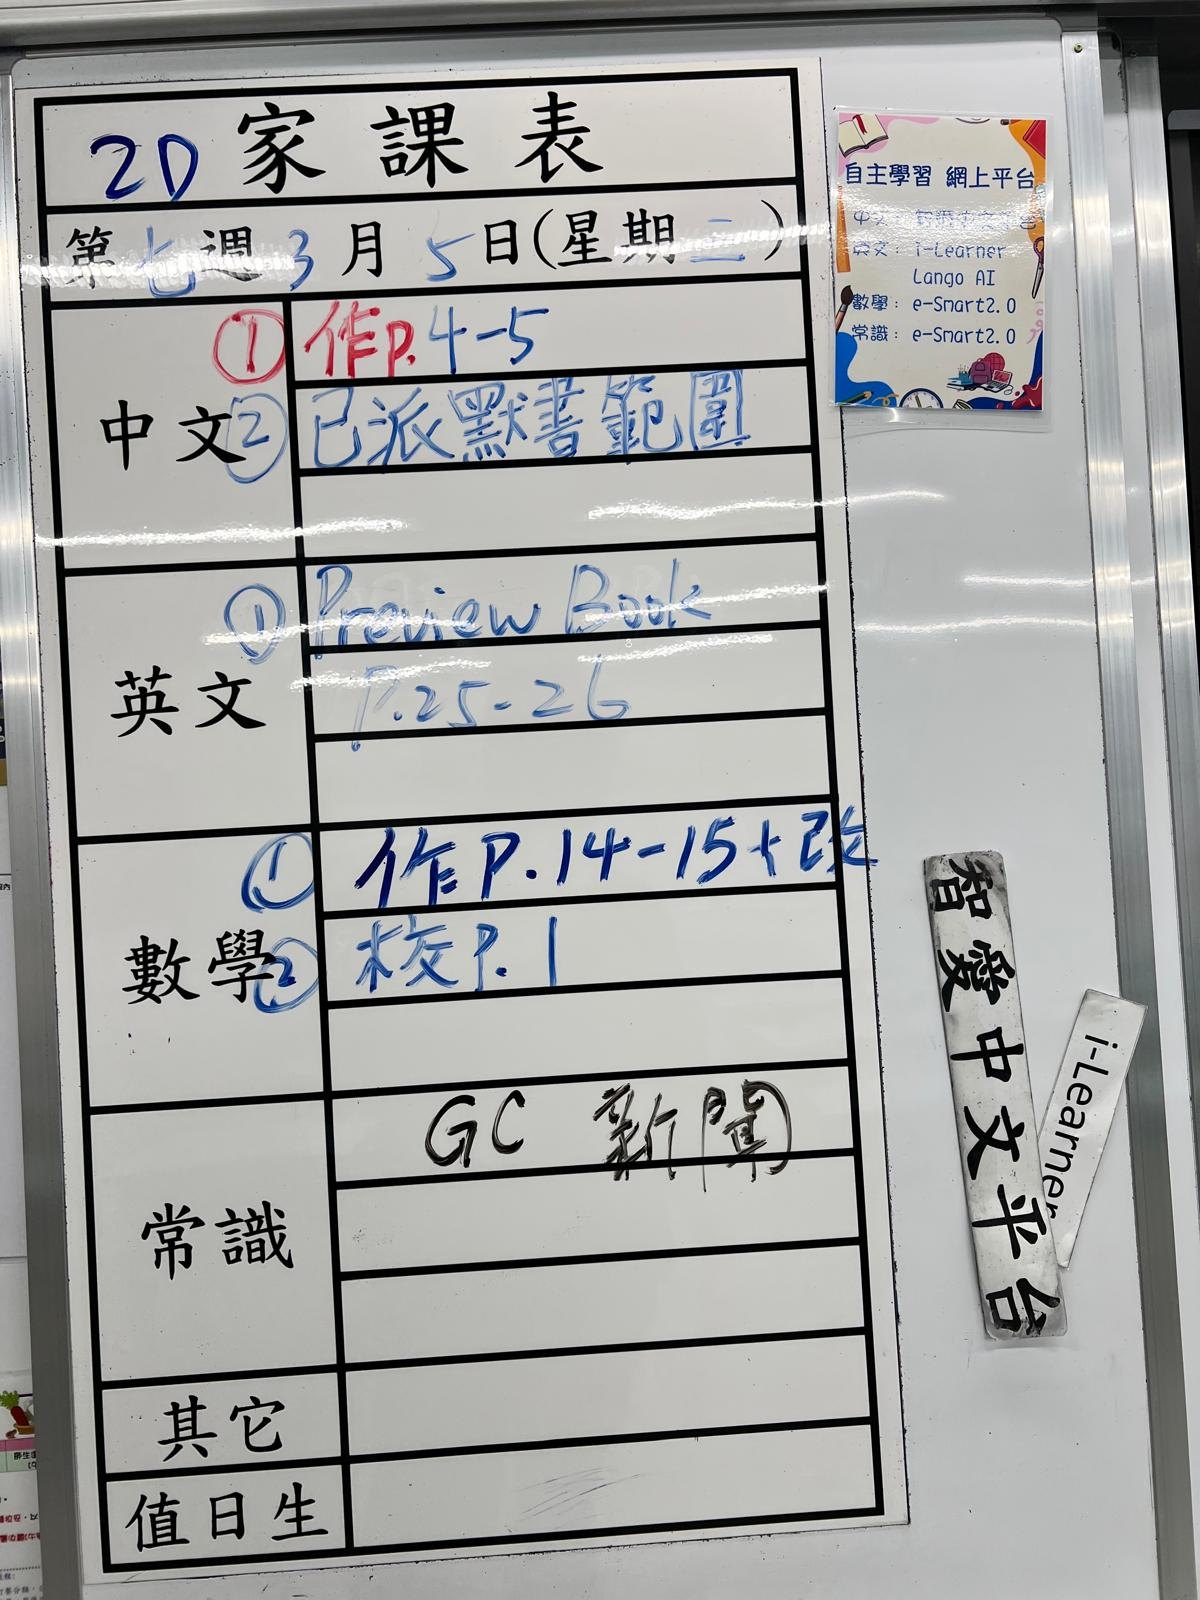 2D 家課表
第七週 3月 5日(星期三)
中文
① 作p. 4-5
② 已派默書範圍
英文
① Preview Book
P.25-26
數學
① 作P.14-15+改
② 校P.1
常識
GC 新聞
其它
值日生
自主學習 網上平台
中文: 智愛中文平台
英文: i-Learner
Lango AI
數學: e-Smart2.0
常識: e-Smart2.0
智愛中文平台
i-Learner